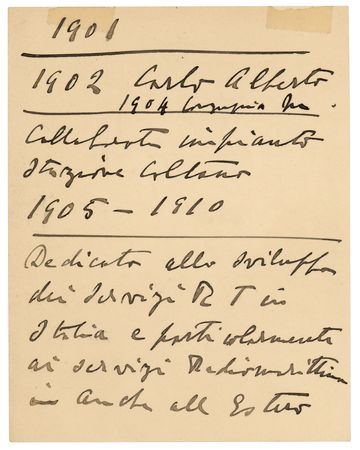 1901
1902 Carlo Alberto
1904
Collaborato impianto
Stazione Coltano
1905 - 1910
Dedicato allo sviluppo
dei servizi R T in
Italia e particolarmente
ai servizi Radiomarittimi
in Anche all Estero